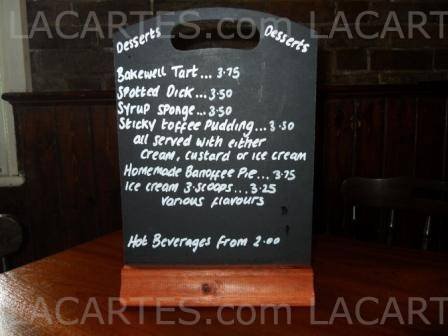 LACARTES.COM LACARTES.COM
Desserts Desserts
Bakewell Tart... 3.75
Spotted Dick... 3.50
Syrup Sponge... 3.50
Sticky toffee Pudding... 3.50
all served with either
cream, custard or ice cream
Homemade Banoffee Pie... 3.75
Ice cream 3.scoops... 3.25
various flavours
Hot Beverages from 2.00
LACARTES.COM LACARTES.COM